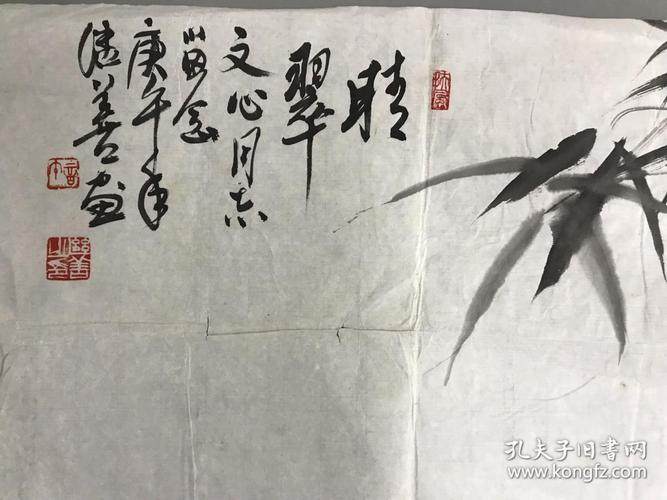 晴翠
文心同志
留念
庚午年
善画
孔夫子旧书网
www.kongfz.com